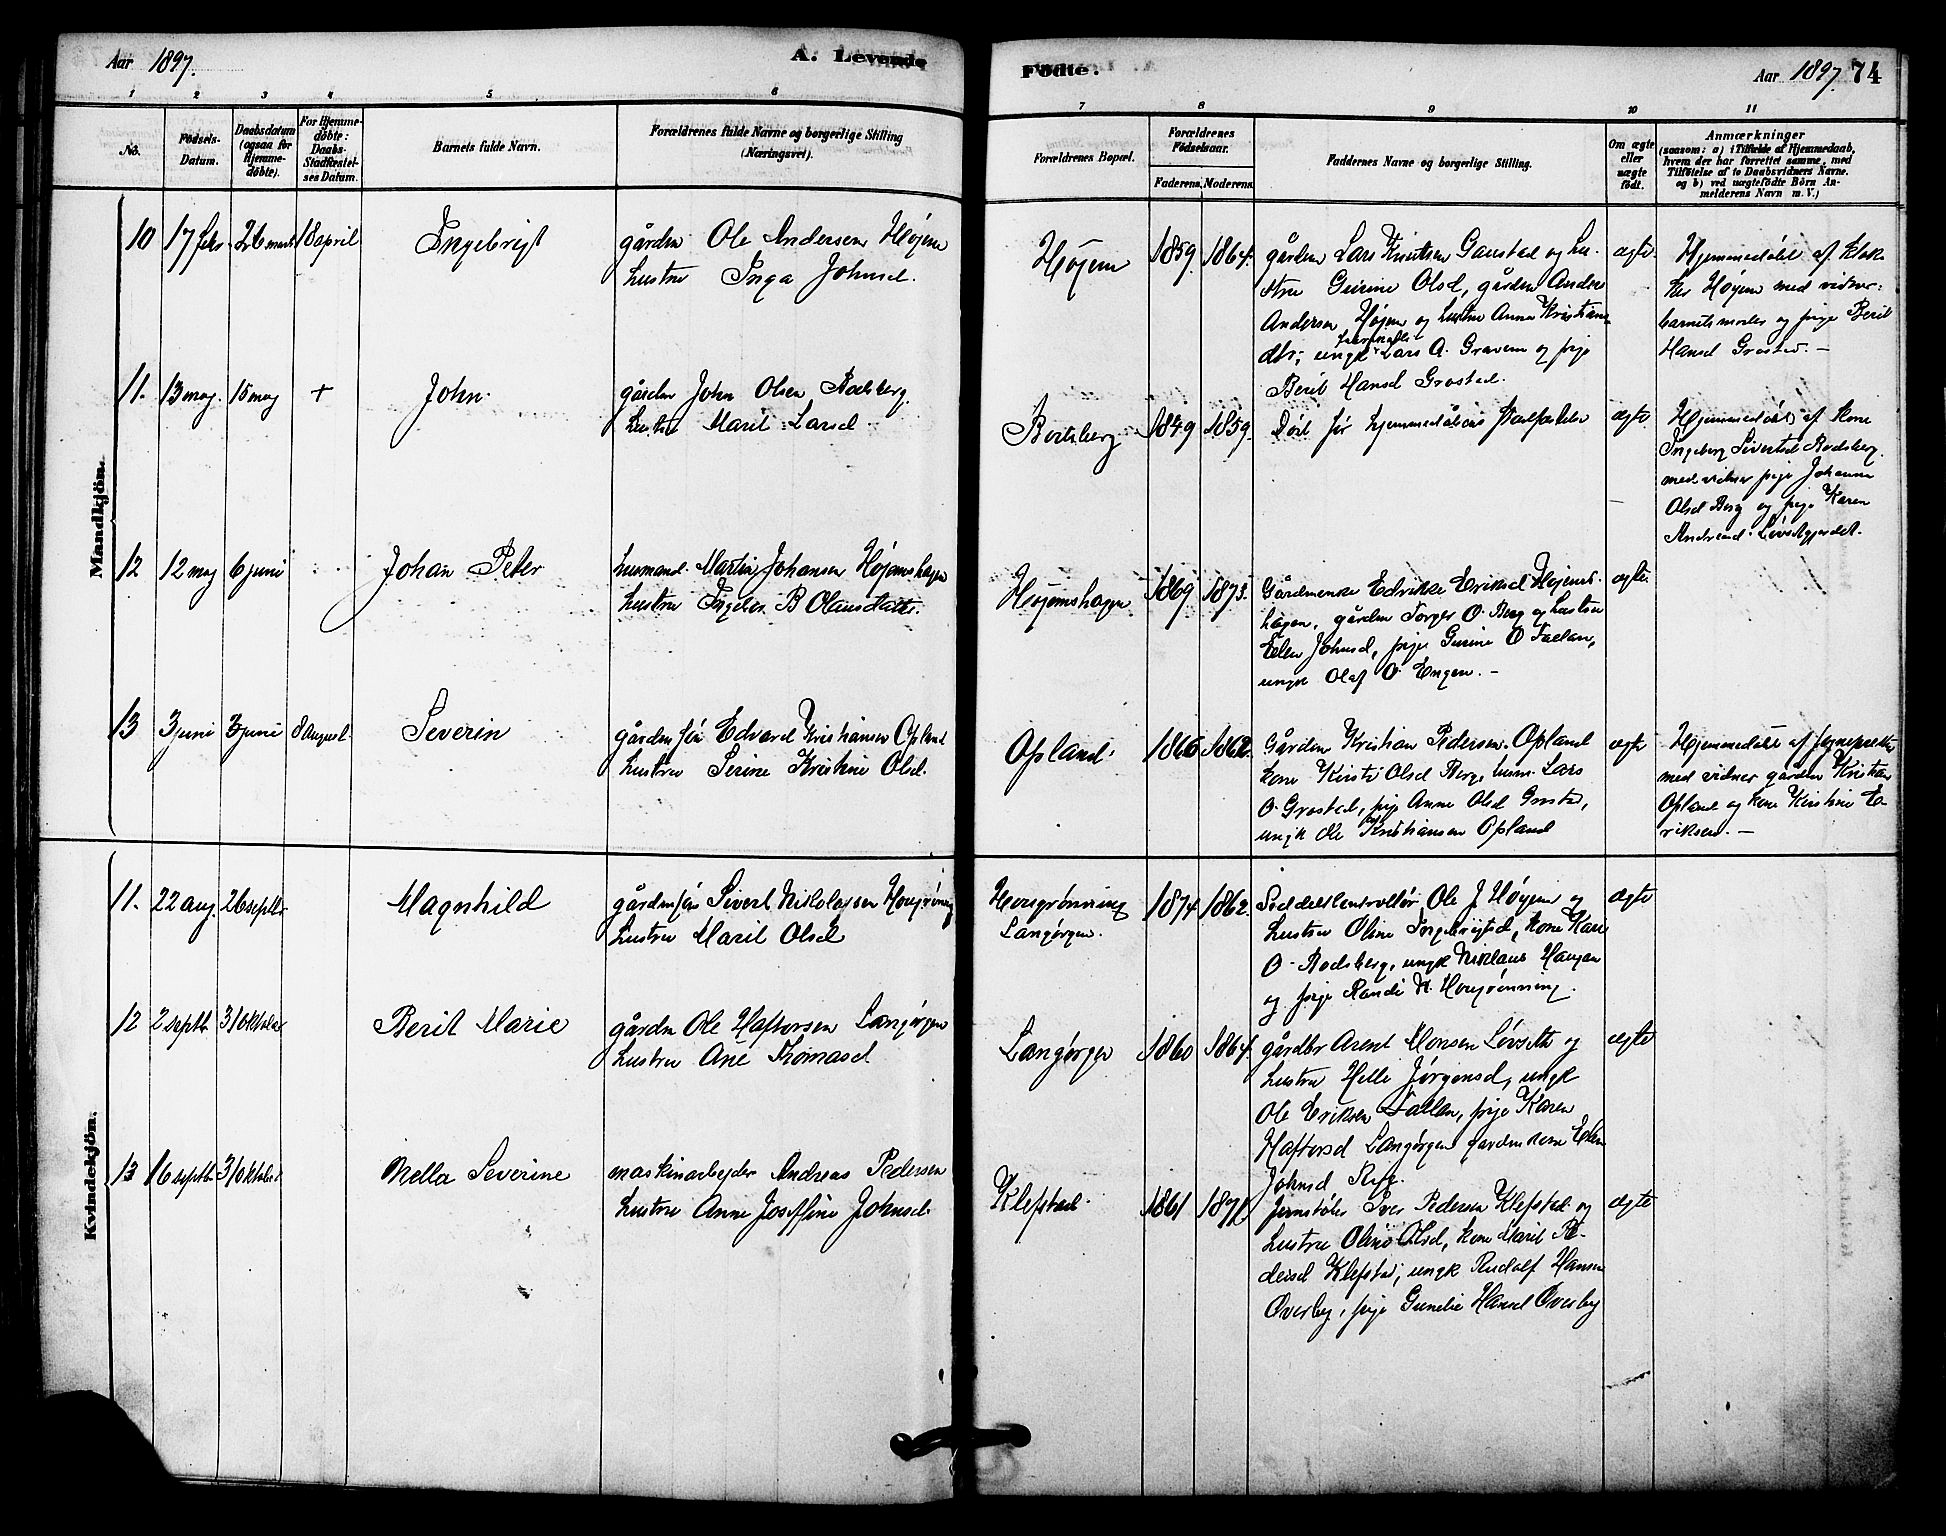 Aar 1897.
A. Levende
Födte.
Aar 1897. 74
1 2 3 4 5 6
7 8 9 10 11
No.
Födsels-
Datum.
Daabsdatum
(ogsaa for
Hjemme-
döbte).
For Hjemme-
döbte:
Daabs-
Stadfæstel-
ses Datum.
Barnets fulde Navn.
Forældrenes fulde Navne og borgerlige Stilling
(Næringsvei).
Forældrenes Bopæl.
Forældrenes
Födselsaar.
Faderens. Moderens.
Faddernes Navne og borgerlige Stilling.
Om ægte
eller
uægte
födt.
Anmærkninger
(saasom: a) i Tilfælde af Hjemmedaab,
hvem der har forrettet samme, med
Tilföielse af to Daabsvidners Navne.
og b) ved uægtefödte Börn An-
melderens Navn m. V.)
Mandkjön.
10 17 febr 26 marts 18 april
Ingebrigt
gårdm Ole Andersen Højem
hustru Inga Johnsd.
Højem
1859. 1864.
gårdm Lars Knutsen Gaustad og hu-
stru Guruine Olsd, gårdm Anders
Andersen Højem og hustru Anna Kristians-
dtr; ungk Lars A. Gravem og pige
Berit Hansd Grostad.
ægte.
Hjemmedøbt af klok-
ker Højem med vidner:
barnets moder og pige Berit
Hansd Grostad. —
11. 13 maj. 15 maj +
John.
gårdm John Olsen Rodsberg.
hustru Marit Larsd.
1849 1859.
Død før hjemmedåbens stadfæstelse
ægte
Hjemmedøbt af kone
Ingeborg Sivertsd Rodsberg.
med vidner pige Johanna
Olsd Berg og pige Karen
12 12 maj 6 juni
Johan Peter
husmand. Martin Johansen Højemshagen
hustru Ingeborg B Olausdatter.
Højemshagen
1869 1873.
Gårdmenske Edrikke Eriksd Højems-
hagen, gårdm Torger O. Berg og hustru
Elen Johnsd, pige Gurine O Fallan,
ungk Olaf O. Engen. —
ægte.
13 3 juni 3 juni 8 august.
Severin
gårdm søn Edvard Kristiansen Opland
hustru Serine Kristine Olsd.
Opland.
1866 1862.
Gårdm Kristian Pedersen Opland
kone Kirsti Olsd Berg, husm. Lars
O. Grostad, pige Anne Olsd Grostad,
ungk Ole Kristiansen Opland
ægte
Hjemmedøbt af sognepræsten
med vidner gårdm Kristian
Opland og kone Kirstine E-
riksen. —
Kvindekjön.
11. 22 aug 26 septbr
Magnhild
gårdm søn Sivert Nikolajsen Hongrønning
hustru Marit Olsd
Hongrønning
Langørgen.
1874 1862.
Seddelkontrollør Ole J Høyem og
hustru Oline Ingebrigtsd, kone Kari
O. Rodsberg, ungk Niklaus Haugan
og pige Randi N. Hongrønning.
ægte
12 2 septb. 3/oktober
Berit Marie
gårdm Ole Haftorsen Langørgen
hustru Ane Tomasd
Langørgen
1860 1864.
gårdbr Arent Monsen Løvseth og
hustru Helle Jørgensd, ungk
Ole Eriksen Fallan, pige Karen
Haftorsd Langørgen gårdm kone Elen
Johnsd
ægte
13 16 septbr 3/oktober
Nella Severine
maskinarbejder Andreas Pedersen
hustru Anne Josefine Johnsd.
Klefstad.
1861 1871
Jernstøber Iver Pedersen Klefstad og
hustru Oline Olsd, kone Marit Pe-
dersd Klefstad, ungk Rudolf Hansen
Overby, pige Gunelie Hansd Overby
ægte